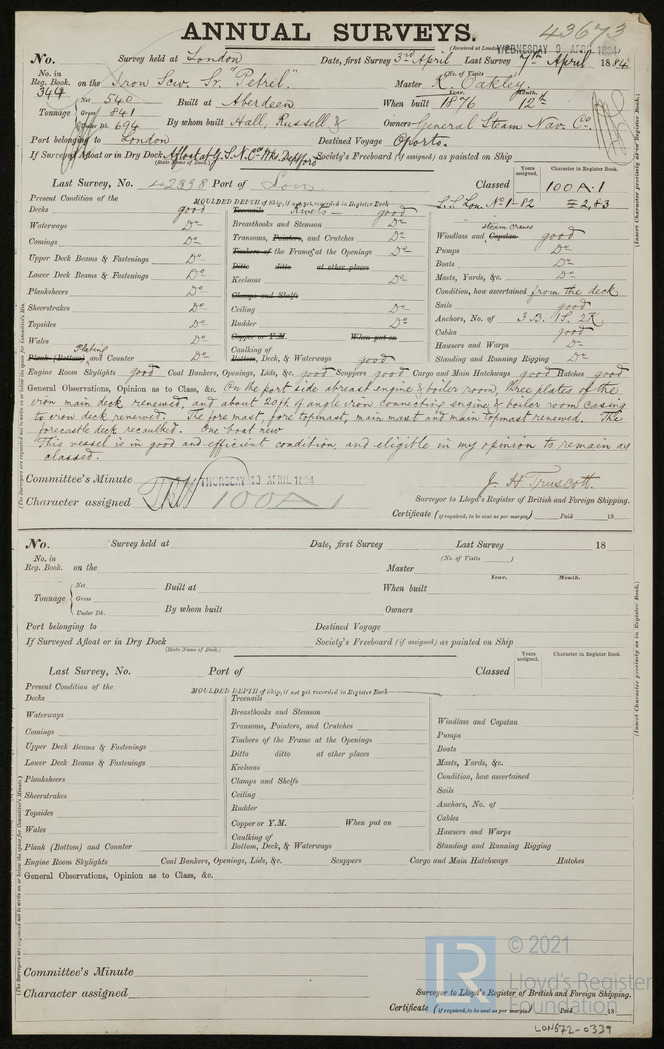 ANNUAL SURVEYS.
43673
(Received at London WEDNESDAY 9 APRIL 1884
No. Survey held at London Date, first Survey 3rd April Last Survey 7th April 1884
No. in Reg. Book. 344 on the Iron Scw. Sr. "Petrel." (No. of Visits Master R. Oakley.
Year. Month.
Tonnage Net 540 Built at Aberdeen When built 1876 12th
Gross 841
Under Dk. 694 By whom built Hall, Russell & Owners General Steam Nav. Co.
Port belonging to London Destined Voyage Oporto.
If Surveyed Afloat or in Dry Dock Afloat at G.S.N.Co's Wks. Deptford Society's Freeboard (if assigned) as painted on Ship
(State Name of Dock.)
Years assigned. Character in Register Book.
Last Survey, No. 42998 Port of Lon Classed 100 A.1
S.S. Lon. No 1-82 2,83
Present Condition of the MOULDED DEPTH of Ship, if not yet recorded in Register Book
Decks good Treenails Rivets good
Waterways Do Breasthooks and Stemson Do steam cranes
Comings Do Transoms, Pointers, and Crutches Do Windlass and Capstan good
Upper Deck Beams & Fastenings Do Timbers of the Frame at the Openings Do Pumps Do
Ditto ditto at other places Boats Do
Lower Deck Beams & Fastenings Do Keelsons Do Masts, Yards, &c. Do
Planksheers Do Clamps and Shelfs Condition, how ascertained from the deck
Sheerstrakes Do Ceiling Do Sails good
Topsides Do Rudder Do Anchors, No. of 3.B. 1S. 2K
Wales Do Copper or Y.M. When put on Cables good
Plating Caulking of Hawsers and Warps Do
Plank (Bottom) and Counter Do Bottom, Deck, & Waterways good Standing and Running Rigging Do
Engine Room Skylights good Coal Bunkers, Openings, Lids, &c. good Scuppers good Cargo and Main Hatchways good Hatches good
General Observations, Opinion as to Class, &c. On the port side abreast engine & boiler room, three plates of the
iron main deck renewed, and about 20 ft of angle iron connecting engine & boiler room casing
to iron deck renewed. The fore mast, fore topmast, main mast and main topmast renewed. The
forecastle deck recaulked. One boat new
This vessel is in good and efficient condition and eligible in my opinion to remain as
classed.
Committee's Minute THURSDAY 10 APRIL 1884
J. H. Truscott.
Character assigned 100A1 Surveyor to Lloyd's Register of British and Foreign Shipping.
Certificate (if required, to be sent as per margin) Paid 18
(The Surveyors are requested not to write on or below the space for Committee's Minute.)
(Insert Character precisely as in Register Book.)
No. Survey held at Date, first Survey Last Survey 18
(No. of Visits )
No. in Reg. Book. on the Master
Year. Month.
Tonnage Net Built at When built
Gross
Under Dk. By whom built Owners
Port belonging to Destined Voyage
If Surveyed Afloat or in Dry Dock Society's Freeboard (if assigned) as painted on Ship
(State Name of Dock.)
Years assigned. Character in Register Book.
Last Survey, No. Port of Classed
Present Condition of the MOULDED DEPTH of Ship, if not yet recorded in Register Book
Decks Treenails
Waterways Breasthooks and Stemson
Comings Transoms, Pointers, and Crutches Windlass and Capstan
Upper Deck Beams & Fastenings Timbers of the Frame at the Openings Pumps
Ditto ditto at other places Boats
Lower Deck Beams & Fastenings Keelsons Masts, Yards, &c.
Planksheers Clamps and Shelfs Condition, how ascertained
Sheerstrakes Ceiling Sails
Topsides Rudder Anchors, No. of
Wales Copper or Y.M. When put on Cables
Caulking of Hawsers and Warps
Plank (Bottom) and Counter Bottom, Deck, & Waterways Standing and Running Rigging
Engine Room Skylights Coal Bunkers, Openings, Lids, &c. Scuppers Cargo and Main Hatchways Hatches
General Observations, Opinion as to Class, &c.
Committee's Minute
Character assigned Surveyor to Lloyd's Register of British and Foreign Shipping.
Certificate (if required, to be sent as per margin) Paid 18
(The Surveyors are requested not to write on or below the space for Committee's Minute.)
(Insert Character precisely as in Register Book.)
LR © 2021
Lloyd's Register
Foundation
LON672-0339